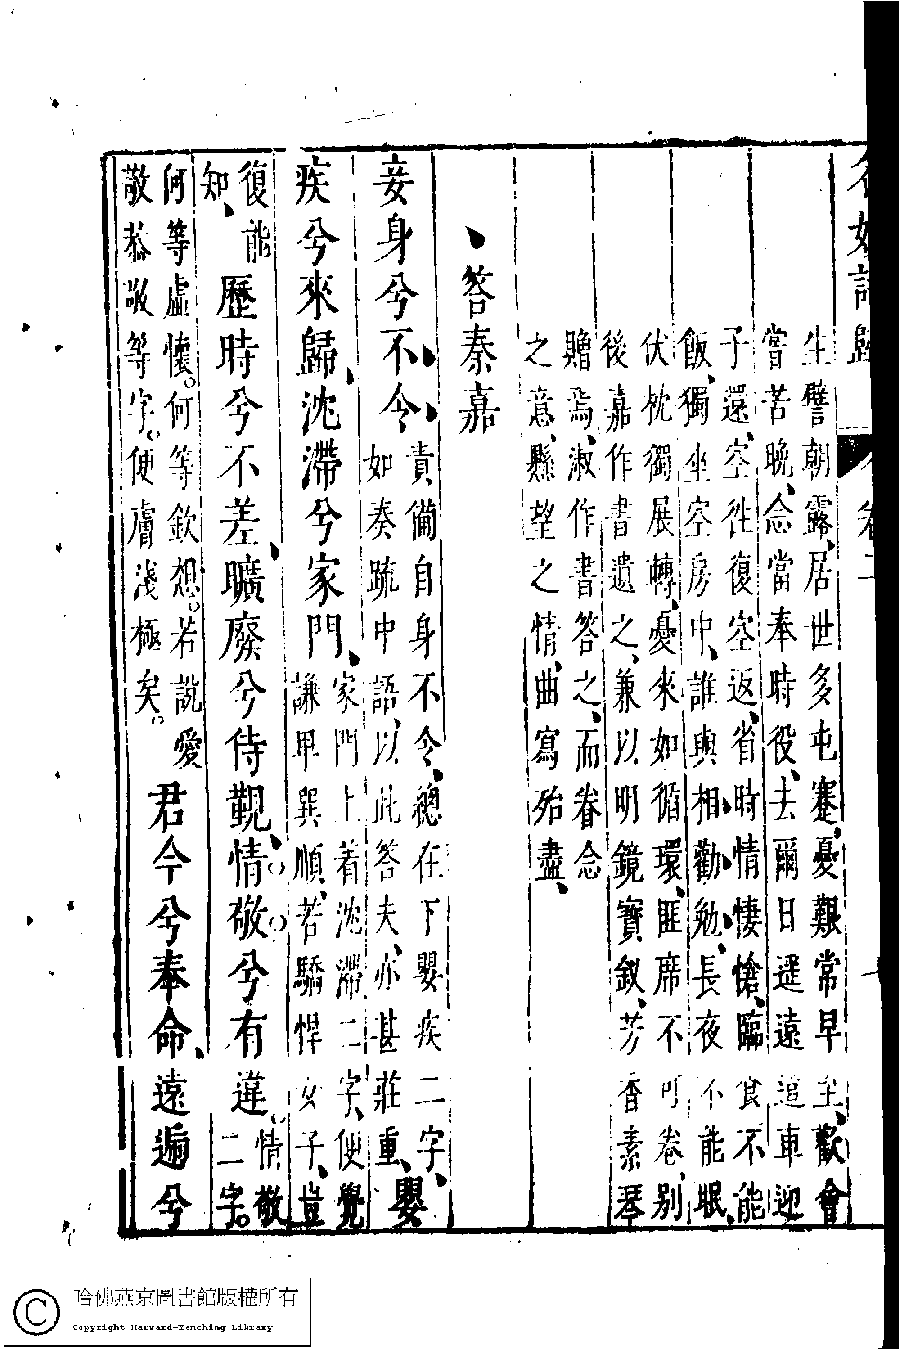 名媛詩歸 卷二
生譬朝露、居世多屯蹇、憂艱常早至、歡會
嘗苦晚、念當奉時役、去爾日遥遠、遣車迎
子還、空往復空返、省時情悽愴、臨食不能
飯、獨坐空房中、誰與相勸勉、長夜不能眠、
伏枕獨展轉、憂來如循環、匪席不可卷、別
後嘉作書遺之、兼以明鏡寶釵、芳香素琴
贈焉、淑作書答之、而眷念
之意、懸望之情、曲寫殆盡、
、答秦嘉
妾身兮不令、
責備自身不令、總在下嬰疾二字、
如奏疏中語、以此答夫、亦甚莊重、
嬰
疾兮來歸、沈滯兮家門、
家門上着沈滯二字、便覺
謙卑巽順、若驕悍女子、豈
復能
知、
歷時兮不差、曠廢兮侍覲、情敬兮有違、
情敬
二字。
何等虛懷。何等欽想。若說愛
敬恭敬等字。便膚淺極矣。
君今兮奉命、遠適兮
哈佛燕京圖書館版權所有
Copyright Harvard-Yenching Library